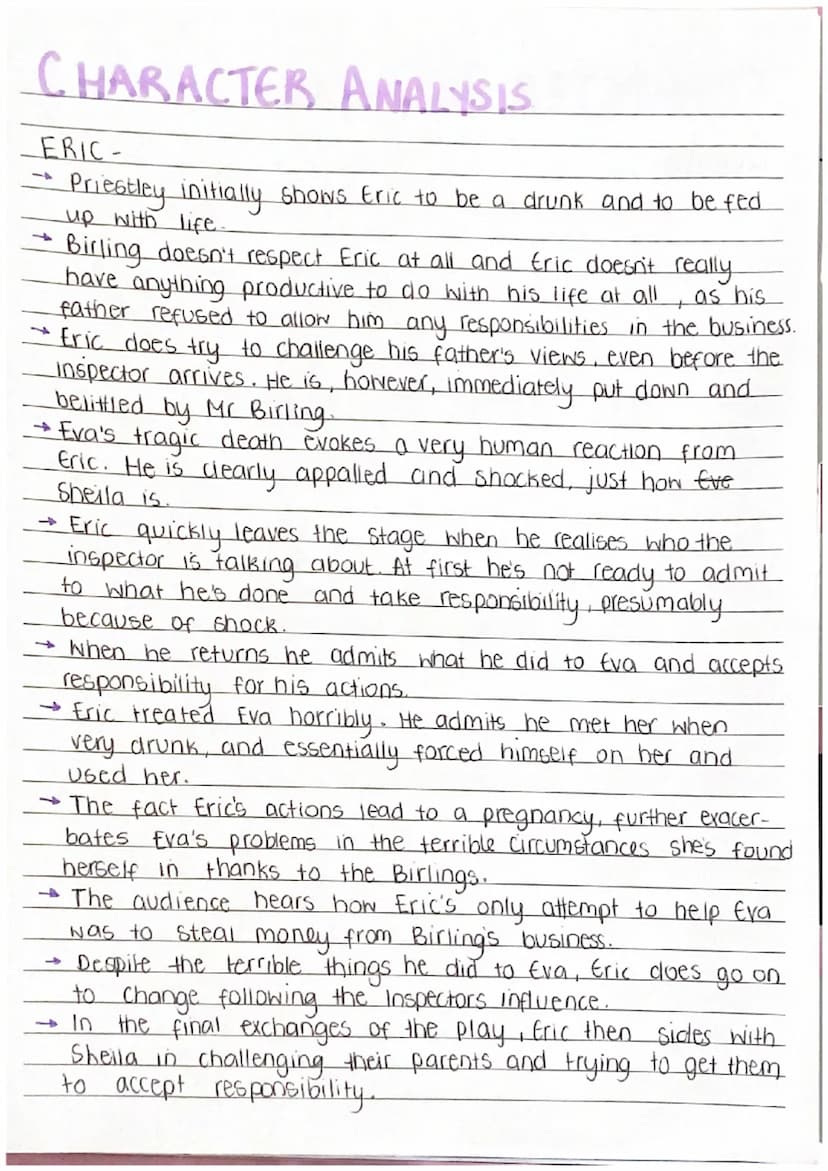 CHARACTER ANALYSIS
ERIC -
→ Priestley initially shows Eric to be a drunk and to be fed
up with life.
→ Birling doesn't respect Eric at all and Eric doesn't really
have anything productive to do with his life at all, as his
father refused to allow him any responsibilities in the business.
→ Eric does try to challenge his father's views, even before the
inspector arrives. He is, however, immediately put down and
belittled by Mr Birling.
→ Eva's tragic death evokes a very human reaction from
Eric. He is clearly appalled and shocked, just how Eve
Sheila is.
→ Eric quickly leaves the stage when he realises who the
inspector is talking about. At first he's not ready to admit
to what he's done and take responsibility, presumably
because of shock.
→ When he returns he admits what he did to Eva and accepts
responsibility for his actions.
→ Eric treated Eva horribly. He admits he met her when
very drunk, and essentially forced himself on her and
used her.
→ The fact Eric's actions lead to a pregnancy, further exacer-
bates Eva's problems in the terrible circumstances she's found
herself in thanks to the Birlings.
→ The audience hears how Eric's only attempt to help Eva
was to steal money from Birling's business.
→ Despite the terrible things he did to Eva, Eric does go on
to change following the Inspectors influence.
→ In the final exchanges of the play, Eric then sides with
Sheila in challenging their parents and trying to get them
to accept responsibility.